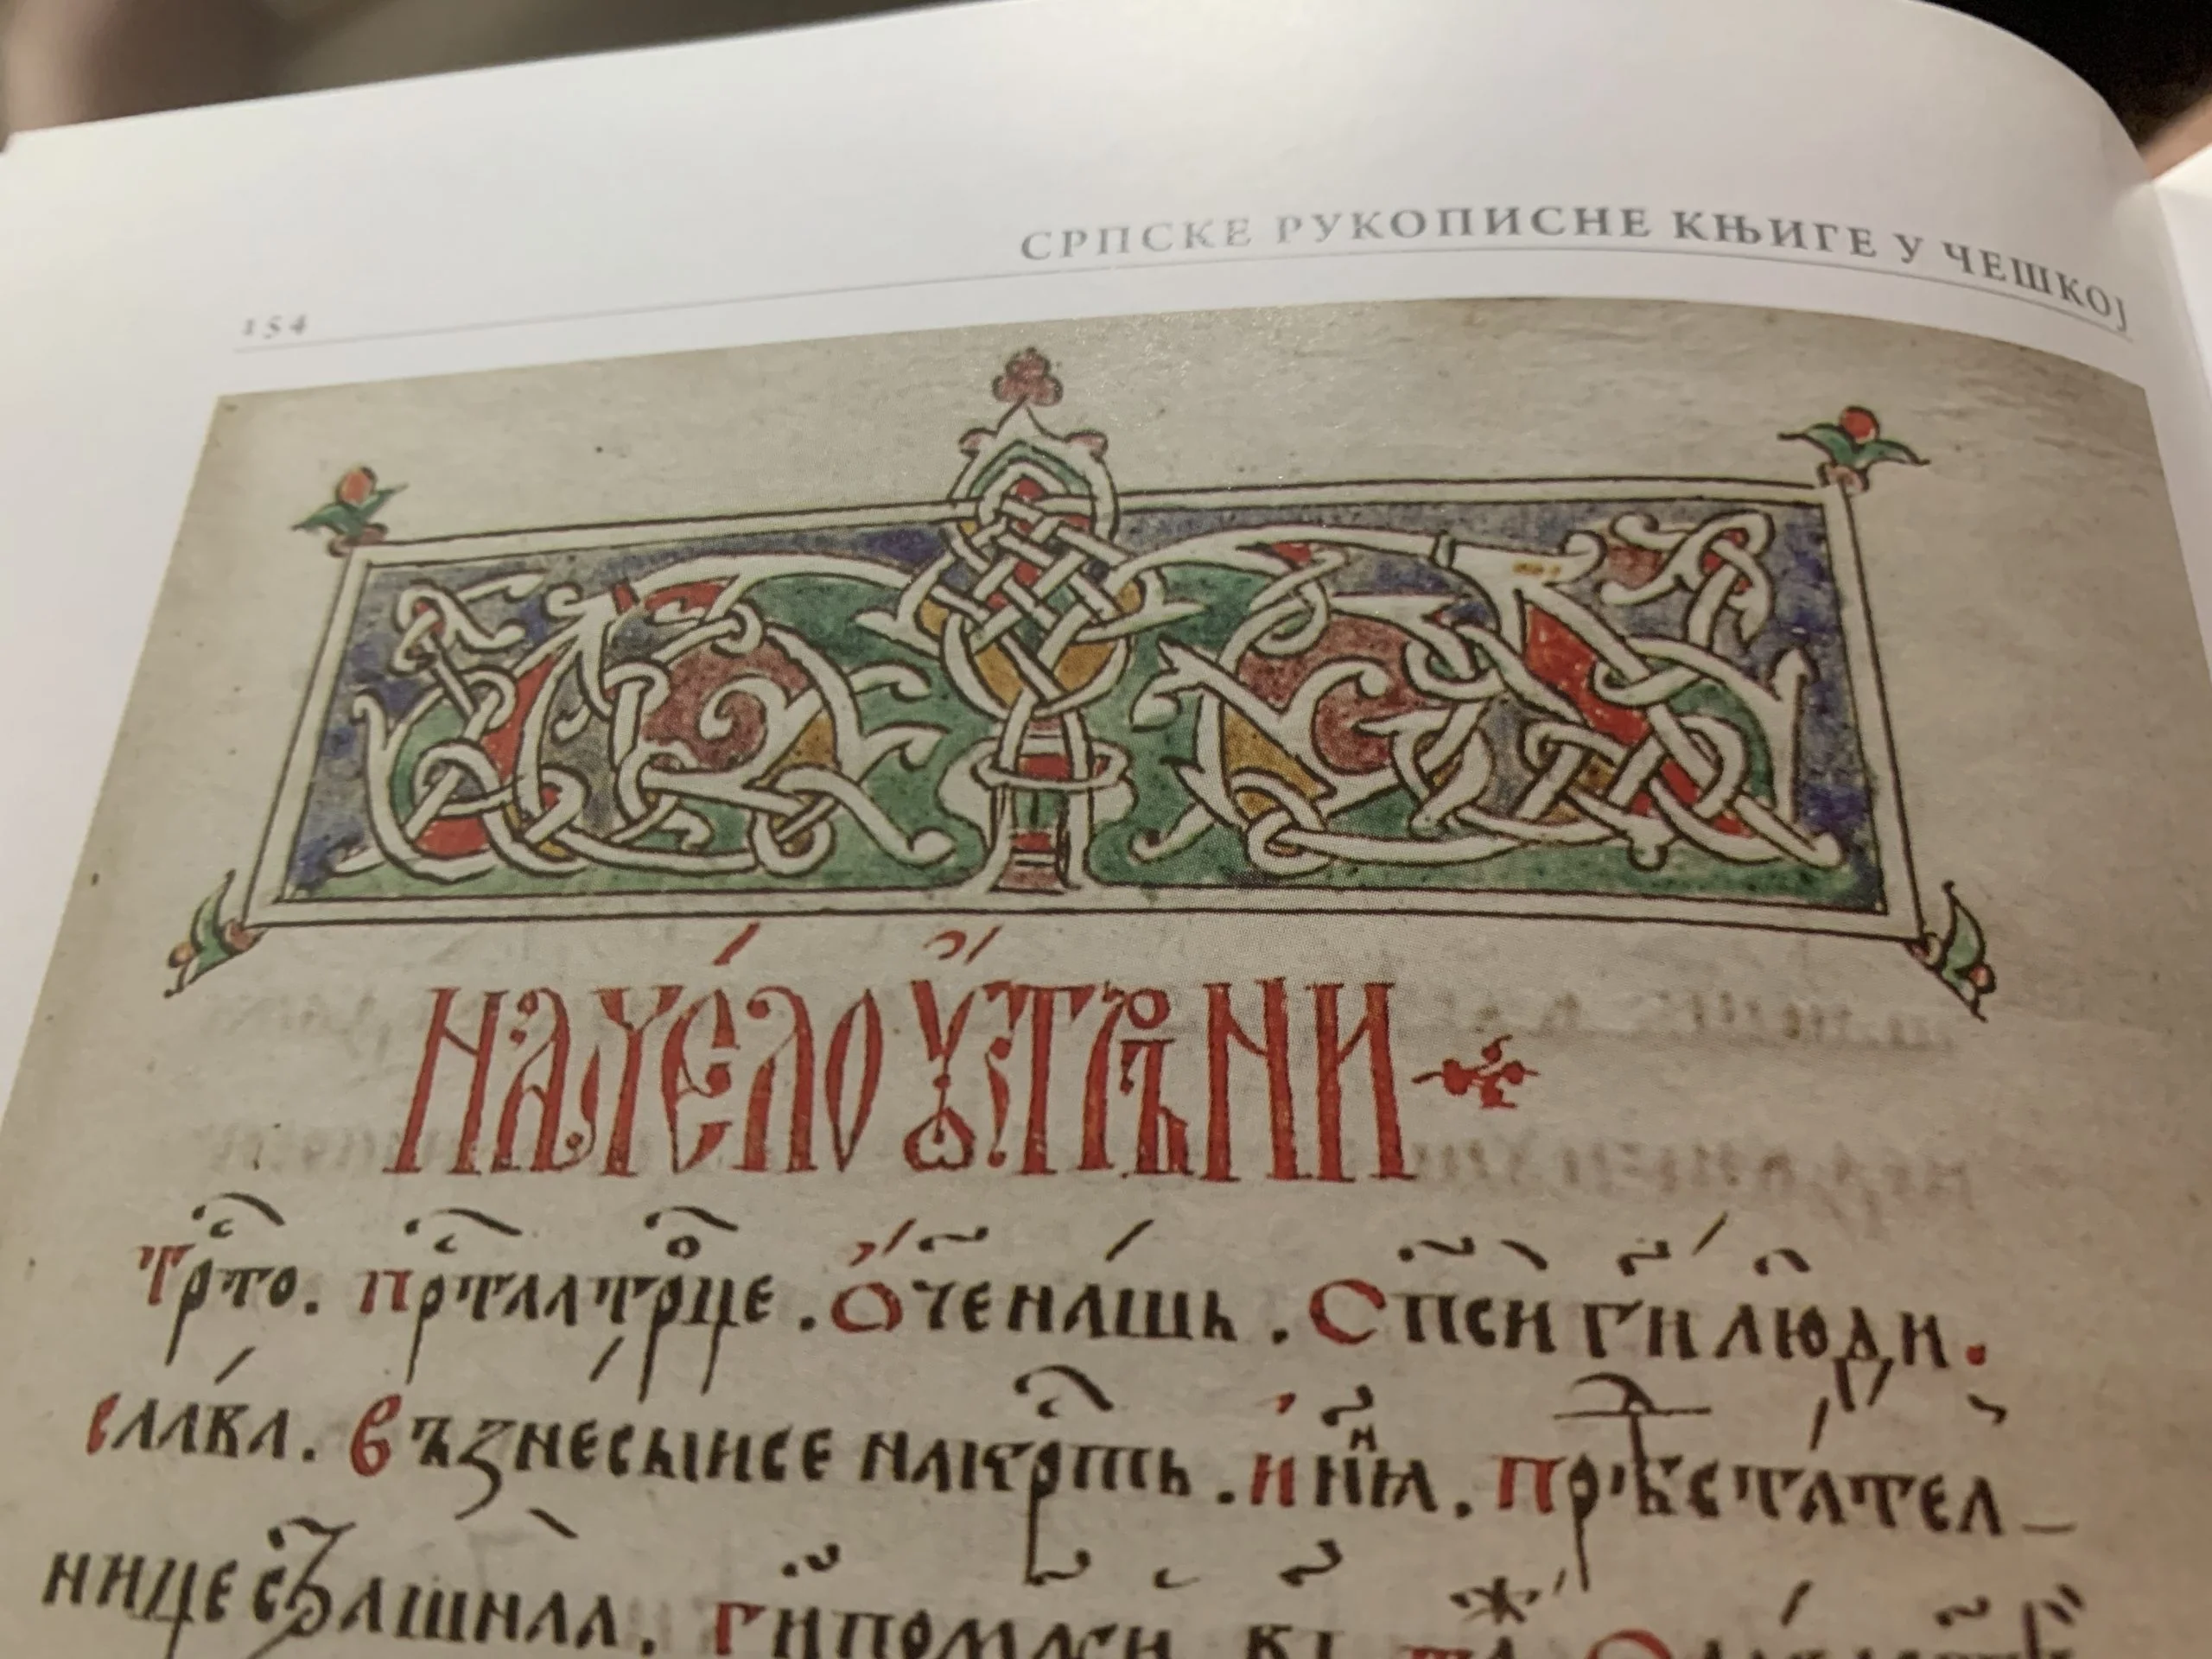 154
СРПСКЕ РУКОПИСНЕ КЊИГЕ У ЧЕШКОЈ
НАЧЕЛО ОУТРЬНИ
трⷭ҇то. прⷭ҇таатрⷪ҇це. ѻ҆ч҃енашь. сп҃си г҃и люⷣи.
слава. възнесыисе накрⷭ҇ть. и нн҃ꙗ. прѣⷣстател–
нице страшнаа. г҃ипомлⷭ҇и